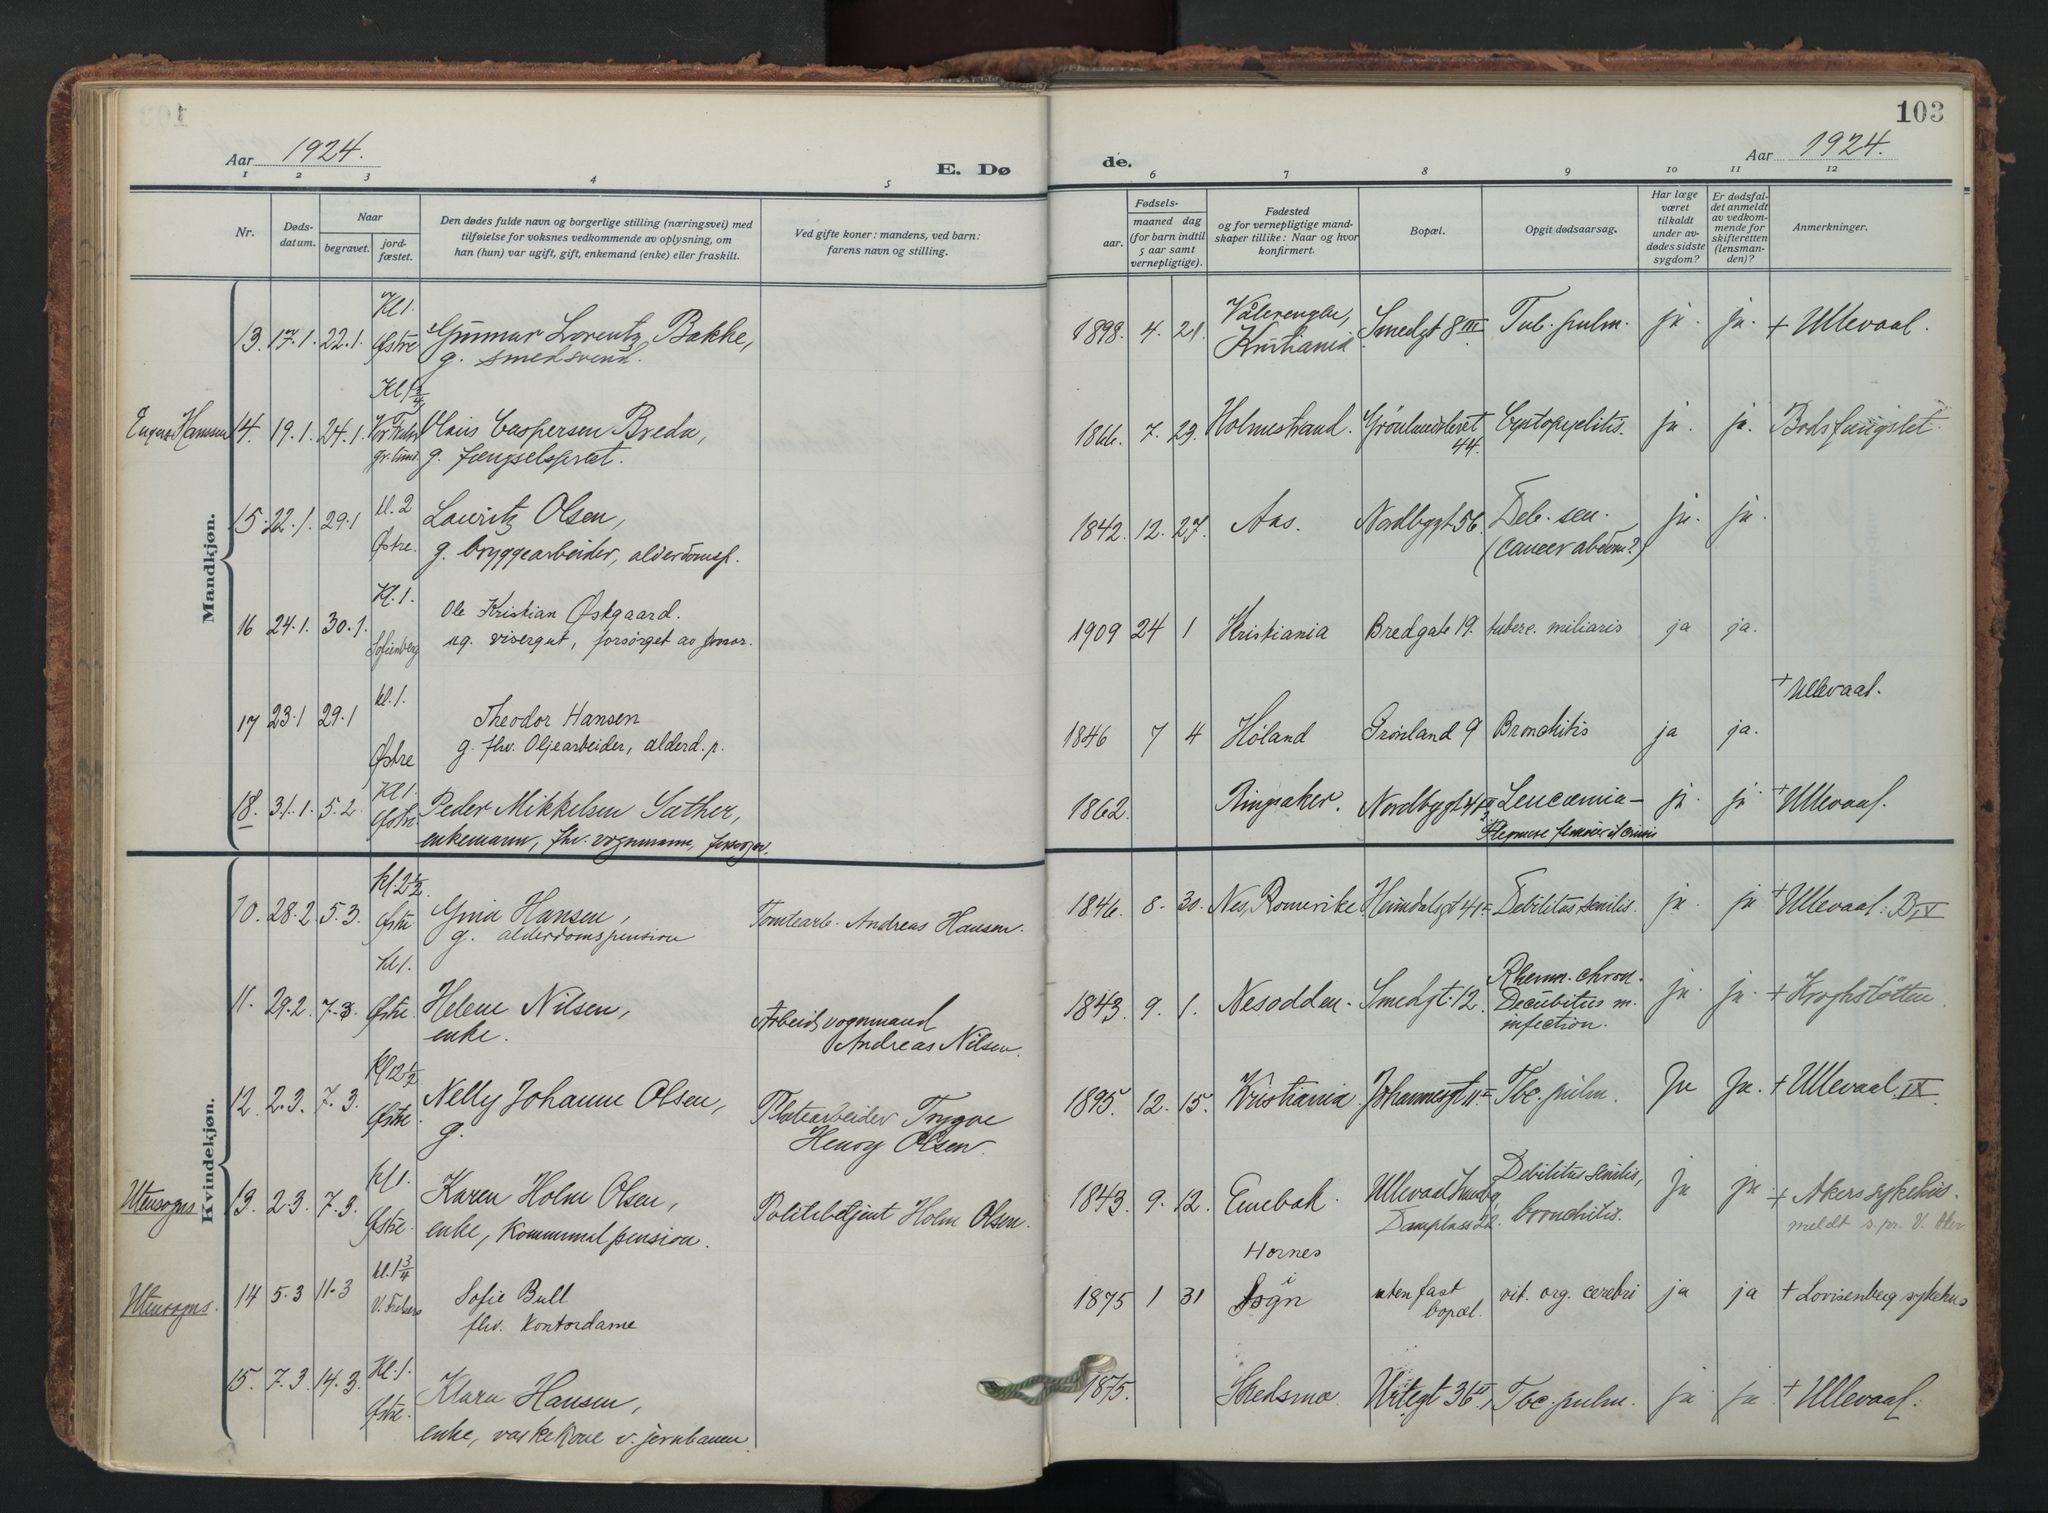 103
Aar 1924.
E. Dø
de.
Aar 1924.
1 2 3 4 5 6 7 8 9 10 11 12
Nr.
Døds-
datum.
Naar
begravet.
jord-
fæstet.
Den dødes fulde navn og borgerlige stilling (næringsvei) med
tilføielse for voksnes vedkommende av oplysning, om
han (hun) var ugift, gift, enkemand (enke) eller fraskilt.
Ved gifte koner: mandens, ved barn:
farens navn og stilling.
Fødsels-
aar.
maaned dag
(for barn indtil
5 aar samt
vernepligtige).
Fødested
og for vernepligtige mand-
skaper tillike: Naar og hvor
konfirmert.
Bopæl.
Opgit dødsaarsag.
Har læge
været
tilkaldt
under av-
dødes sidste
sygdom?
Er dødsfal-
det anmeldt
av vedkom-
mende for
skifteretten
(lensman-
den)?
Anmerkninger.
Mandkjøn.
13. 17.1. 22.1. Kl 1. Østre Gunnar Lorentz Bakke,
g. smedsvend.
1898. 4. 21. Vålerengba, Kristiania Smedgt 8 III Tub. pulm. ja. ja. + Ullevaal.
Hanssen 14. 19.1. 24.1. Kl 1 3/4 Olaus Caspersen Breda,
g. fængselsprest.
1866. 7. 23. Holmestrand. Grönlandsleret 44. Cystopyelitis. ja. ja. Bodsfængslet.
15. 22.1. 29.1 kl. 2 Østre. Lauritz Olsen,
g. bryggearbeider, alderdomsp.
1842. 12. 27. Aas. Nordbygt 56 Deb. sen.
(cancer abdom?) ja. ja.
16 24.1. 30.1. Kl. 1. Sofienberg Ole Kristian Østgaard.
ug. visergut, forsørget av
1909 24 1 Kristiania Bredgate 19. tuberc. miliaris ja ja.
17 23.1 29.1 kl. 1. Østre Theodor Hansen
g. fhv. Oljearbeider, alderd. p.
1846 7 4 Høland Grønland 9 Bronchitis ja ja. + Ullevaal.
18. 31.1. 5.2. Kl 1. Østre Peder Mikkelsen Sæther,
enkemann, fhv. vognmann,
1862. Ringsaker. Nordbygt Leucæmia – ja. ja. + Ullevaal.
Kvindekjøn.
10. 28.2. 5.3. Kl. 2 1/2. Østre Gina Hansen,
g. alderdomspension
Tomtearb. Andreas Hansen.
1846. 8. 30. Nes, Romerike Heimdalsgt 41 Debilitus senilis. ja. ja + Ullevaal: B, IX
11. 29.2. 7.3 Kl 1. Østre Helene Nilsen,
enke.
Arbeidsvognmand
Andreas Nilsen.
1843. 9. 1. Nesodden. Smedgt. 12. Rheum. chron.
Decubitus m.
infection. ja. ja. + Kroghstøtten
12. 2.3. 7.3. Kl 12 1/2 Østre. Nelly Johanne Olsen,
g.
Platearbeider Trygve
Henry Olsen.
1895. 12. 15. Kristiania Johannesgt 11 Tbc. pulm. Ja Ja. + Ullevaal. IX.
Utensogns 13. 2.3. 7.3. Kl 1. Østre. Karen Holm Olsen,
enke, kommunal pension.
Politibetjent Holm Olsen.
1843. 9. 12. Enebak. Ullevaal
Damplass 22. Debilitus senilis,
bronchitis. Ja ja. + Akers sykehus.
meldt s. pr. V. Aker
Utensogns. 14 5.3 11.3 kl. 1 3/4 V. Frelsers Sofie Bull
fhv. Kontordame
1875 1 31 Hornes
i
Sogn uten fast
bopæl. vit. org. cerebri ja ja + Lovisenberg sykehus
15. 7.3. 14.3. Kl. 1. Østre. Klara Hansen,
enke, vaskekone v. jernbanen.
1875. Skedsmo Urtegt 36 II, Tbc. pulm. ja ja. + Ullevaal.